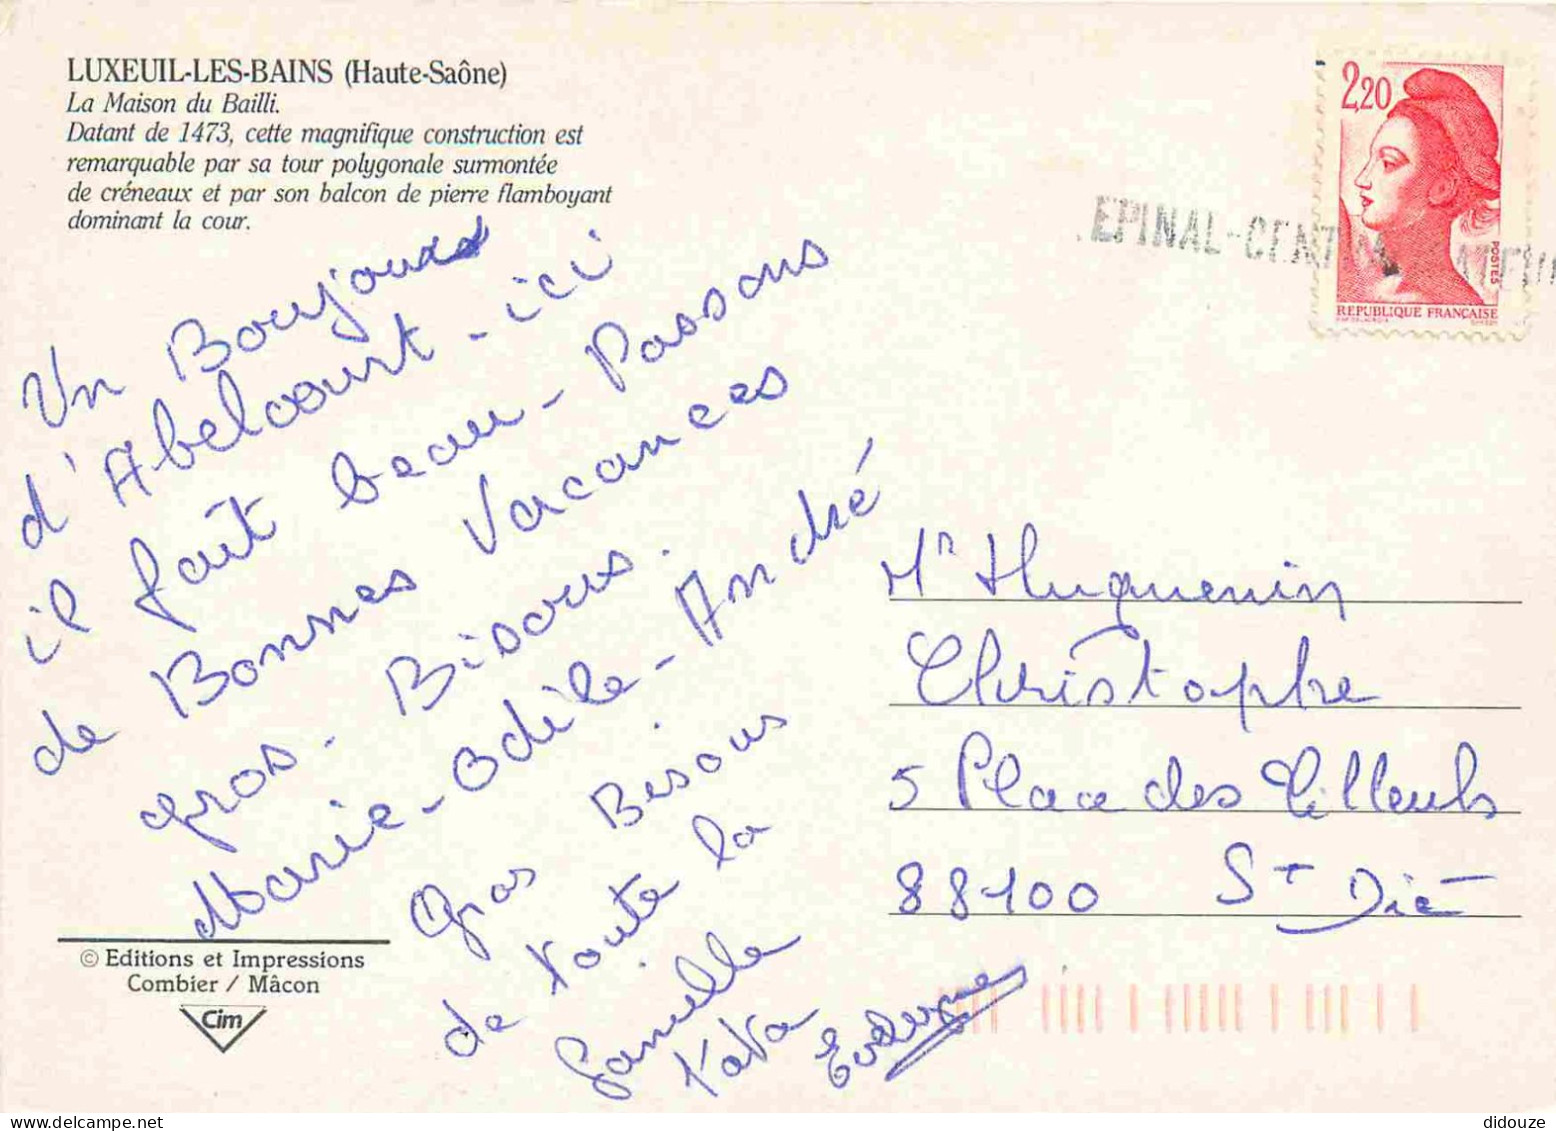 LUXEUIL-LES-BAINS (Haute-Saône)
La Maison du Bailli.
Datant de 1473, cette magnifique construction est
remarquable par sa tour polygonale surmontée
de créneaux et par son balcon de pierre flamboyant
dominant la cour.
Un Boujours
d'Abelcourt - ici
il fait beau - Passons
de Bonnes Vacances
gros - Bisous.
Marie-Odile - André
Gros Bisous
de toute la
famille
tata
© Editions et Impressions
Combier / Mâcon
Cim
2,20
POSTES
REPUBLIQUE FRANÇAISE
EPINAL-CENTRE
Mr Huguenin
Christophe
5 Place des Tilleuls
88100 St Dié
didouze